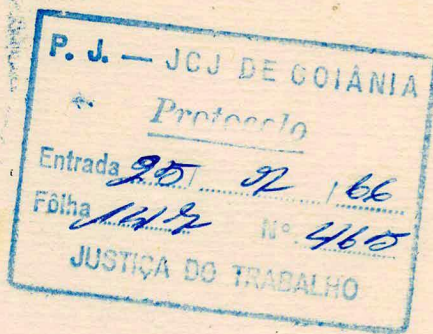 P. J. — JCJ DE GOIÂNIA
Protocolo
Entrada 25 / 2 / 66
Fôlha 147 Nº. 465
JUSTIÇA DO TRABALHO